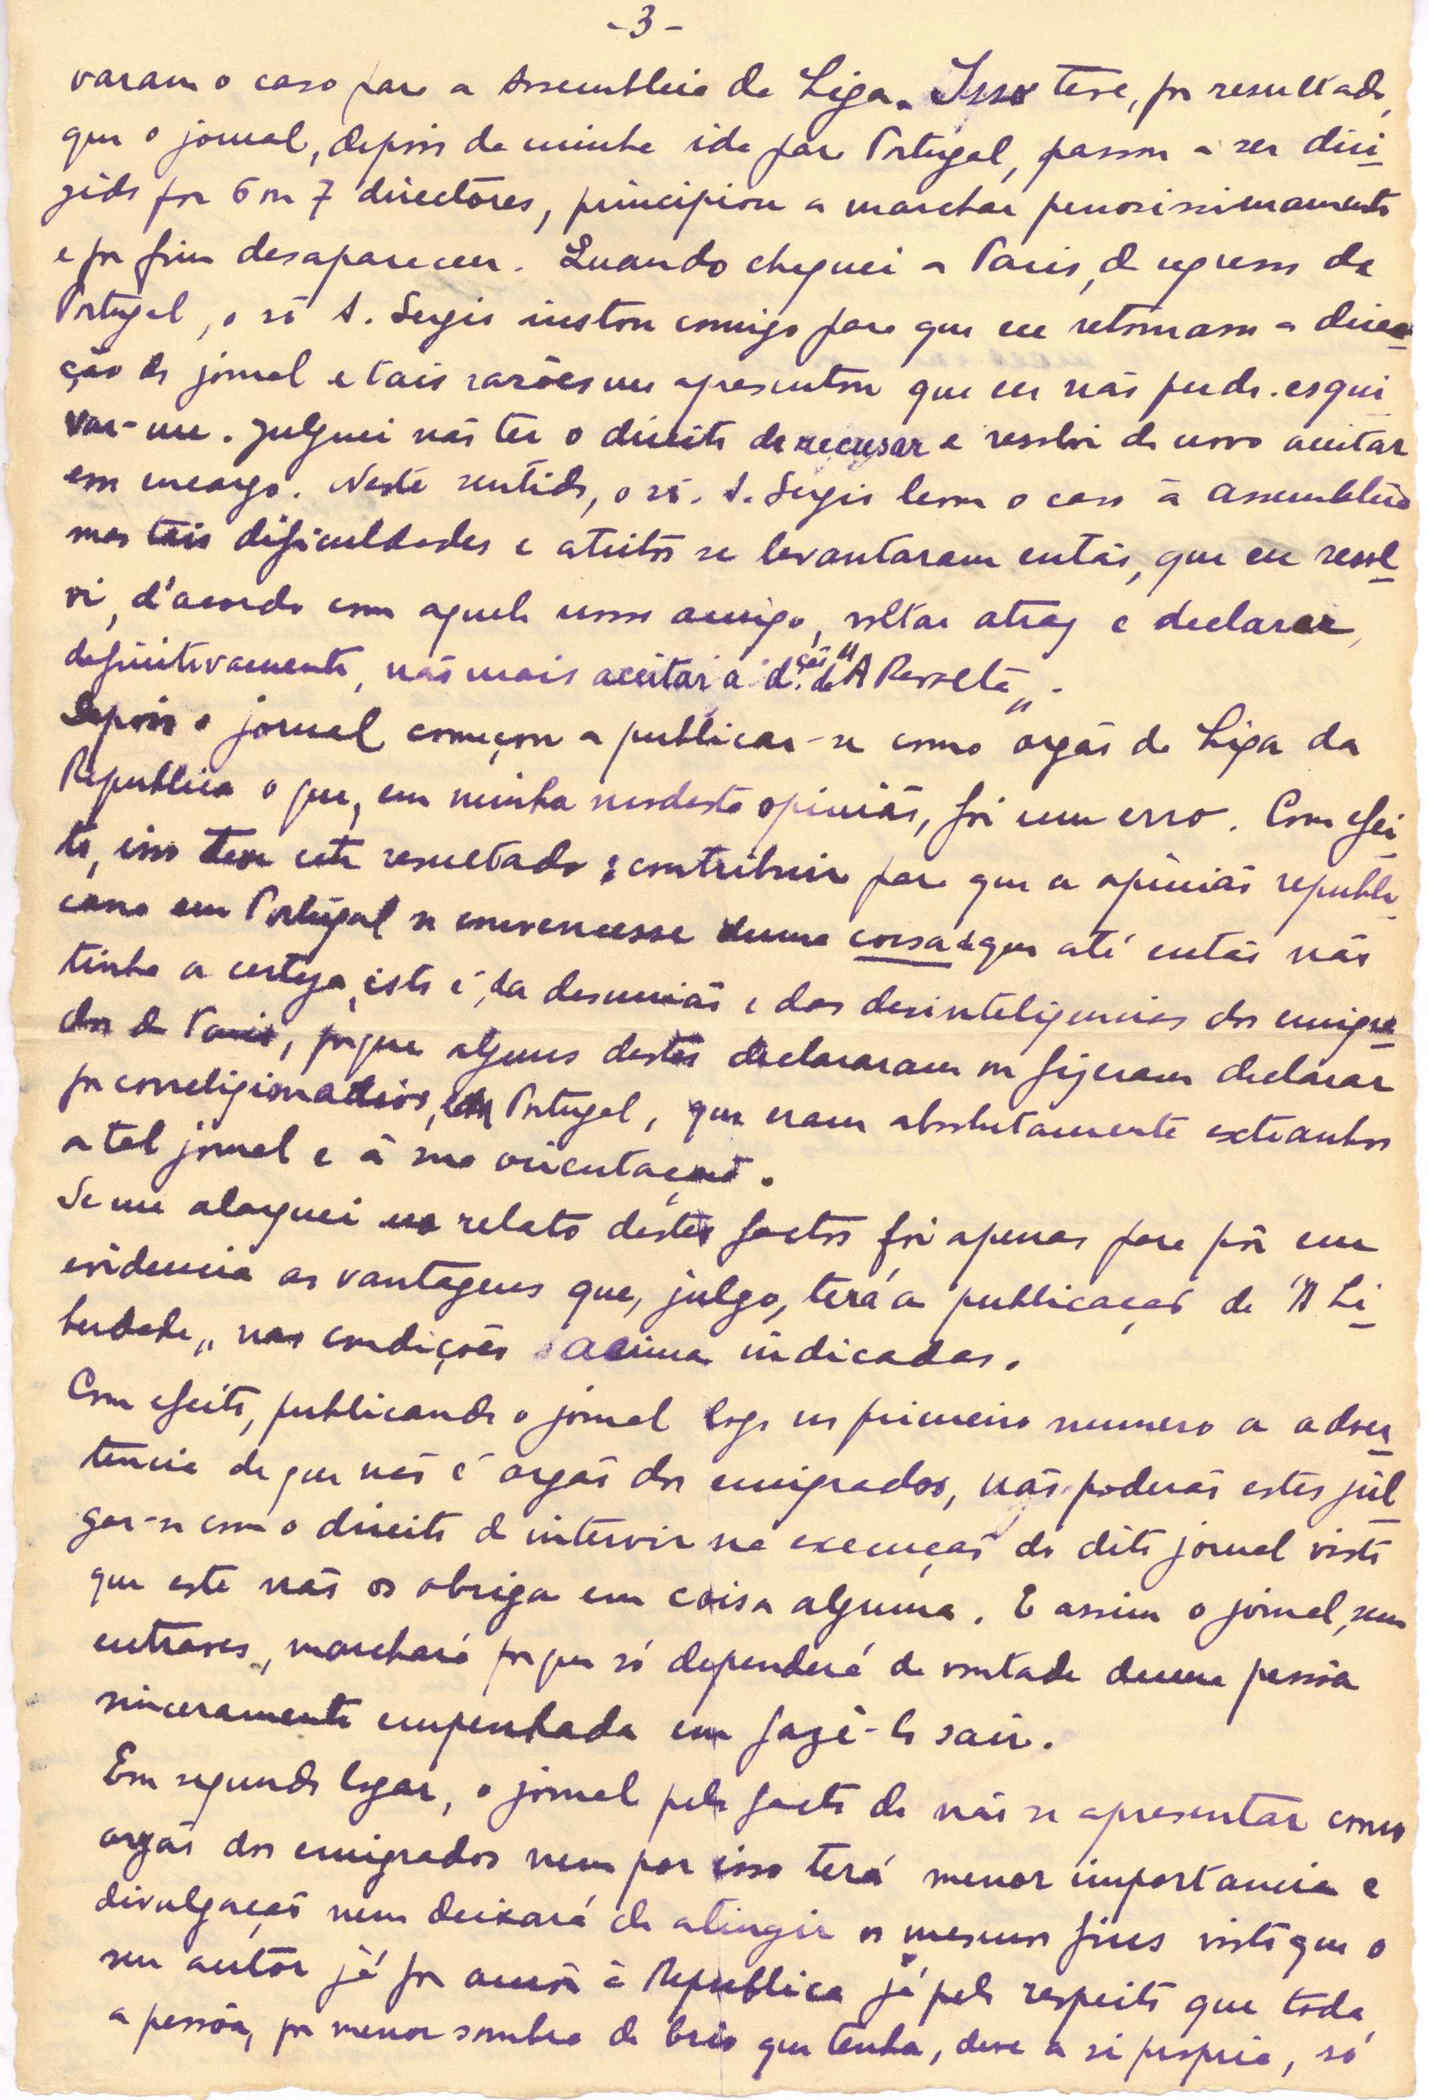 -3-
varam o caso para a Assembleia da Liga. Isso teve, por resultado,
que o jornal, depois da minha ida para Portugal, passou a ser diri-
gido por 6 ou 7 directores, principiou a marchar penosissimamente
e por fim desapareceu. Quando cheguei a Paris, de regresso de
Portugal, o sr. A. Sergio instou comigo para que eu retomasse a direc-
ção do jornal e tais razões me apresentou que eu não pude esqui
var-me. Julguei não ter o direito de recusar e resolvi de novo aceitar
esse encargo. Neste sentido, o sr. A. Sergio levou o caso á assembleia
mas tais dificuldades e atritos se levantaram então, que eu resol-
vi, d'acordo com aquele nosso amigo, voltar atraz e declarar,
definitivamente, não mais aceitar a d.ção de "A Revolta".
Depois o jornal começou a publicar-se como orgão da Liga da
Republica o que, em minha modesta opinião, foi um erro. Com efei
to, isso teve este resultado: contribuir para que a opinião republi-
cana em Portugal se convencesse duma coisa de que até então não
tinha a certeza, isto é, da desunião e das desinteligencias dos emigra-
dos de Paris, porque alguns destes declararam ou fizeram declarar
por correligionarios, em Portugal, que eram absolutamente extranhos
a tal jornal e á sua orientação.
Se me alarguei no relato destes factos foi apenas para pôr em
evidencia as vantagens que, julgo, terá a publicação de "A Li-
berdade" nas condições acima indicadas.
Com efeito, publicando o jornal logo no primeiro numero a adver-
tencia de que não é orgão dos emigrados, não poderão estes jul-
gar-se com o direito de intervir na execução do dito jornal visto
que este não os obriga em coisa alguma. E assim o jornal, sem
entraves, marchará porque só dependerá da vontade duma pessôa
sinceramente empenhada em fazê-lo sair.
Em segundo logar, o jornal pelo facto de não se apresentar como
orgão dos emigrados nem por isso terá menor importancia e
divulgação nem deixará de atingir os mesmos fins visto que o
seu autôr já por amôr á Republica já pelo respeito que toda
a pessôa, por menor sombra de brio que tenha, deve a si propria, só